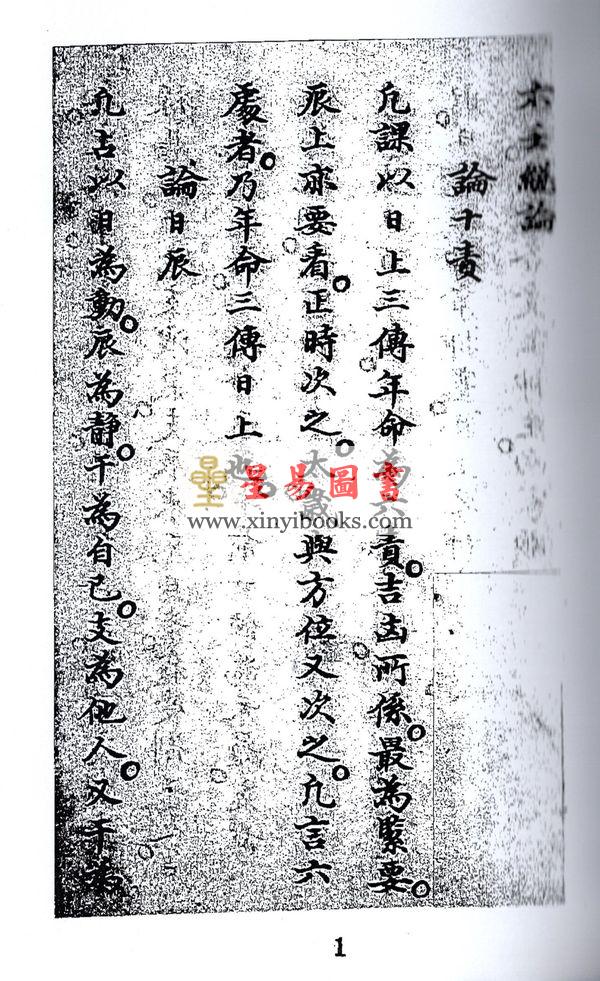 六壬總論
論十責
凢課以日上三傳年命為六責吉凶所係最為緊要
辰上亦要看正時次之太歲與方位又次之凢言六
處者乃年命三傳日上也
論日辰
凢占以日為動辰為靜干為自己支為他人又干為
星易圖書
www.xinyibooks.com
1